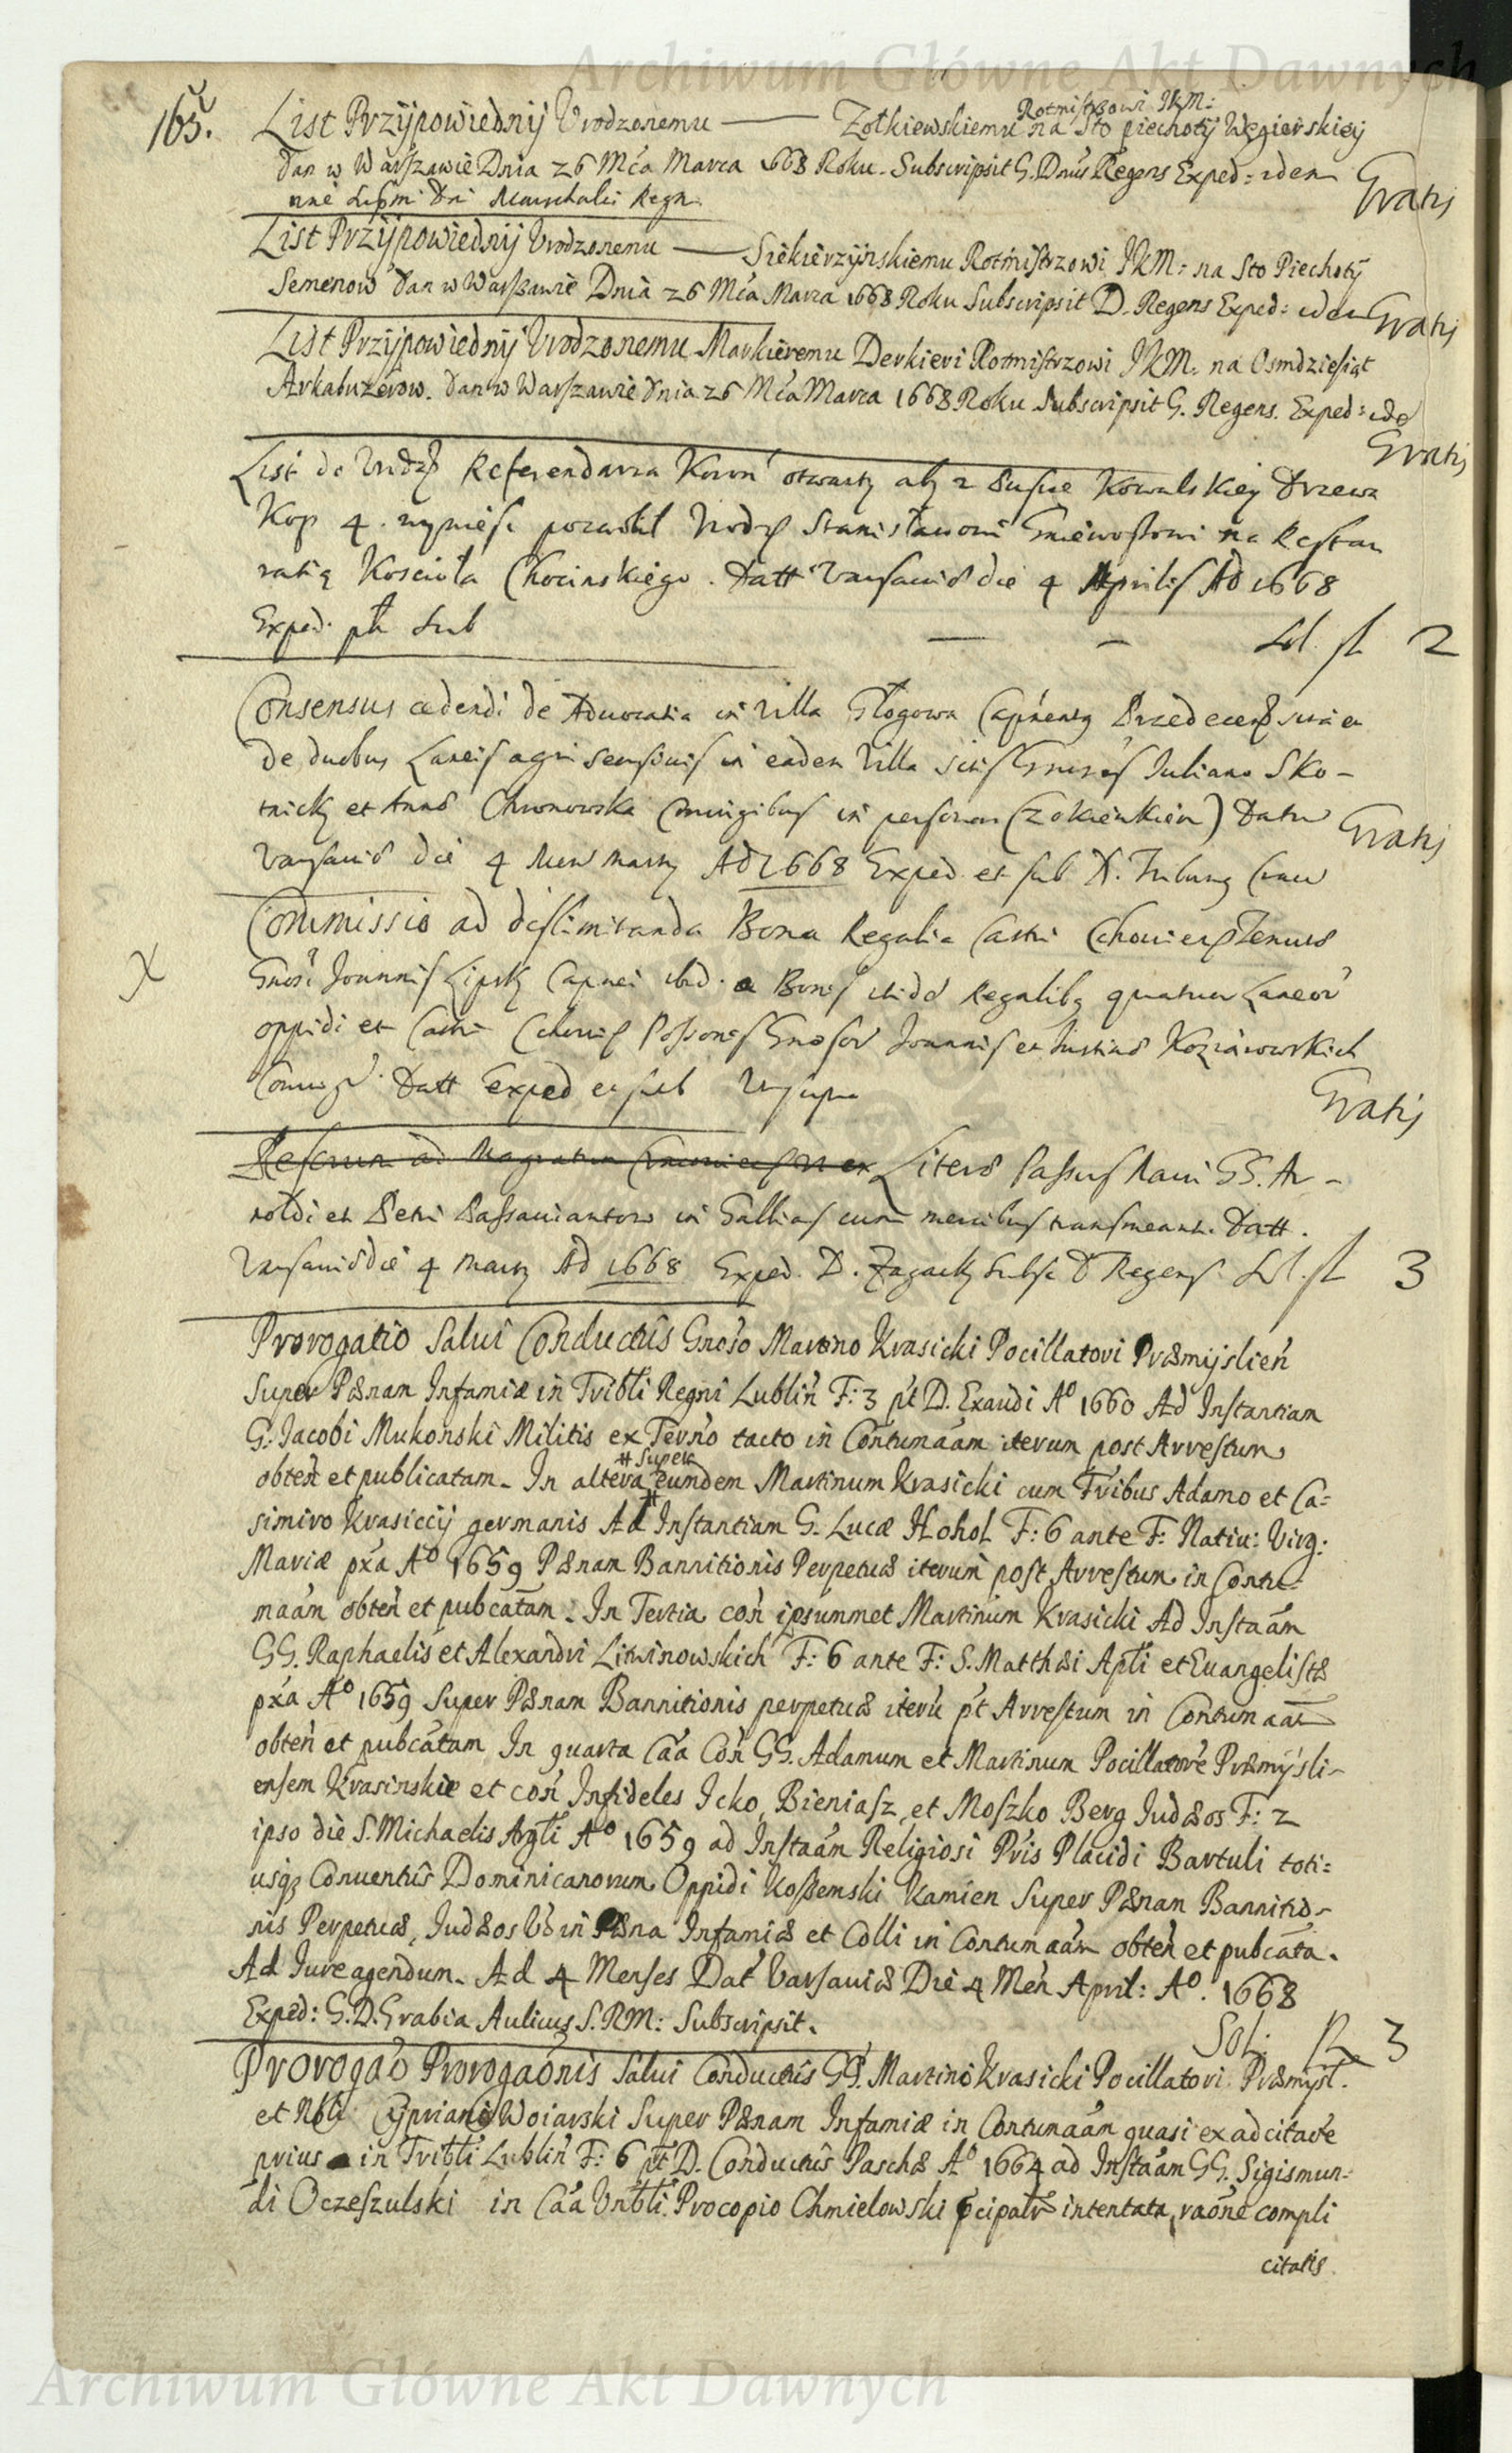 Archiwum Główne Akt Dawnych
165.
List Przÿpowiednij Vrodzonemu — Zołkiewskiemu Rotmistrzowi JKM: na Sto piechotÿ Węgierskieÿ
Dan w Warszawie Dnia 26 Mca Marca 1668 Roku. Subscripsit G. Dnus Regens Exped: idem
Gratis
List Przÿpowiednij Vrodzonemu — Siekierzÿnskiemu Rotmistrzowi JKM: na Sto Piechotÿ
Semenow Dan w Warszawie Dnia 26 Mca Marca 1668 Roku Subscripsit D. Regens Exped: idem
Gratis
List Przÿpowiednij Vrodzonemu Markieremu Derkieri Rotmistrzowi JKM: na Osmdziesiąt
Arkabuzerow. Dan w Warszawie Dnia 26 Mca Marca 1668 Roku Subscripsit G. Regens. Exped: ide
Gratis
List do Vrodz Referendarza Koron otwarty aby z Puszcze Kowalskiey Drzewa
Kop 4. wynieść pozwolil Vrodz Stanisławowi Gniewoszowi na Restau
ratią Koscioła Chocinskiego. Datt Varsaviæ die 4 Aprilis AD 1668
Exped. Sub — — Sol. fl 2
Consensus cedendi de Advocatia in villa Głogowa
de duobus Laneis agri in eadem villa Juliano Sko-
tnicky et Annæ Chronowska Coniugibus in personam Dattum
Gratis
Varsaviæ die 4 Marty AD 1668 Exped et sub D.
Commissio ad dislimitanda Bona Regalia Castri
X
Joannis Lipsky Capnei ibid. a Bonis itidem Regalibus quatuor Laneor
oppidi et Castri Joannis et Kozianowskich
Coniug. Datt Exped et sub Ut supra
Gratis
Literæ Passus Rami GG. Ar-
noldi et Petri in Gallias cum mercibus transmeant. Datt.
Varsaviæ die 4 Marty AD 1668 Exped. D. Zagacky Subsc D Regens Sol. fl 3
Prorogatio Salui Conductûs Gnoso Martino Krasicki Pocillatori Præmÿslien
Super Pænam Infamiæ in Tribli Regni Lublin F: 3 pt D. Exaudi Aº 1660 Ad Instantiam
G. Jacobi Mukonski Militis ex Termo tacto in Contumaam iterum post Arrestum
obten et publicatam. In altera # Super eundem Martinum Krasicki cum Fribus Adamo et Ca=
simiro Krasiccij germanis Ad Instantiam G. Lucæ Hohol F: 6 ante F: Nativ: Virg:
Mariæ pxa Aº 1659 Pænam Bannitionis Perpetuæ iterum post Arrestum in Contu-
maam obten et pubcatam. In Tertia con ipsummet Martinum Krasicki Ad Instaam
GG. Raphaelis et Alexandri Litwinowskich F: 6 ante F: S. Matthæi Apli et Euangelistæ
pxa Aº 1659 Super Pænam Bannitionis perpetuæ iteru pt Arrestum in Contumaam
obten et pubcatam In quarta Caa Con GG. Adamum et Martinum Pocillatore Præmÿsli-
ensem Krasinskie et con Infideles Icko, Bieniasz et Moszko Berg Judæos F: 2
ipso die S. Michaelis Argli Aº 1659 ad Instaam Religiosi Pris Placidi Bartuli toti=
usq3 Conuentûs Dominicanorum Oppidi Koszemski Kamien Super Pænam Bannitio-
nis Perpetuæ, Judæos Vo in Pæna Infamiæ et Colli in Contumaam obten et pubcata.
Ad Jure agendum. Ad 4 Menses Dat Varsauiæ Die 4 Men April: Aº. 1668
Exped: G. D. Grabia Aulicus S. RM: Subscripsit.
Sol. fl 3
Prorogao Prorogaonis Salui Conductûs GG. Martino Krasicki Pocillatori Præmÿsl.
et Nbli Cÿpriano Woiarski Super Pænam Infamiæ in Contumaam quasi ex ad citare
prius in Tribli Lublin F: 6 pt D. Conductûs Paschæ Aº 1664 ad Instaam GG. Sigismun-
di Oczeszulski in Caa Vnbli Procopio Chmielowski pcipalr intentata, raone compli
citatis
Archiwum Główne Akt Dawnych